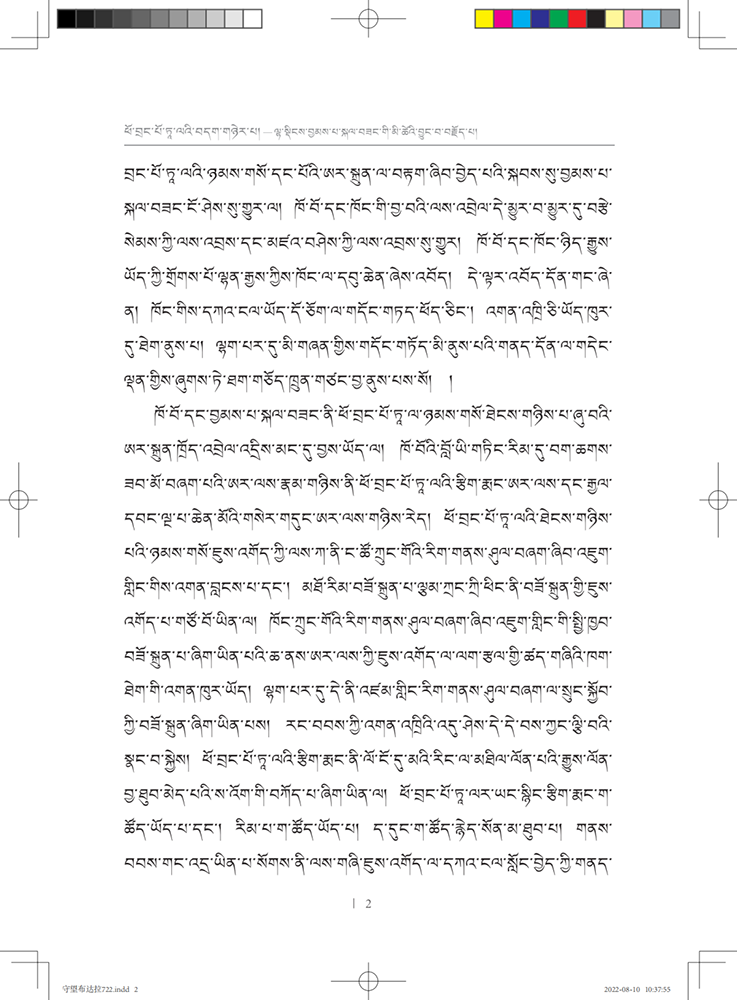 ཕོ་བྲང་པོ་ཏཱ་ལའི་བདག་གཉེར་པ། — ལྷ་སྡིངས་བྱམས་པ་སྐལ་བཟང་གི་མི་ཚེའི་བྱུང་བ་བརྗོད་པ།
བྲང་པོ་ཏཱ་ལའི་ཉམས་གསོ་དང་པོའི་ཨར་སྐྲུན་ལ་བརྟག་ཞིབ་བྱེད་པའི་སྐབས་སུ་བྱམས་པ་
སྐལ་བཟང་ངོ་ཤེས་སུ་གྱུར་ལ། ཁོ་བོ་དང་ཁོང་གི་བྱ་བའི་ལས་འབྲེལ་དེ་མྱུར་བ་མྱུར་དུ་བརྩེ་
སེམས་ཀྱི་ལས་འབྲས་དང་མཛའ་བཤེས་ཀྱི་ལས་འབྲས་སུ་གྱུར། ཁོ་བོ་དང་ཁོང་ཉིད་རྒྱུས་
ཡོད་ཀྱི་གྲོགས་པོ་ལྷན་རྒྱས་ཀྱིས་ཁོང་ལ་དབུ་ཆེན་ཞེས་འབོད། དེ་ལྟར་འབོད་དོན་གང་ཞེ་
ན། ཁོང་གིས་དཀའ་ངལ་ཡོད་དོ་ཅོག་ལ་གདོང་གཏད་ཕོད་ཅིང་། འགན་འཁྲི་ཅི་ཡོད་ཁུར་
དུ་ཐེག་ནུས་པ། ལྷག་པར་དུ་མི་གཞན་གྱིས་གདོང་གཏོད་མི་ནུས་པའི་གནད་དོན་ལ་གདེང་
ལྡན་གྱིས་ཞུགས་ཏེ་ཐག་གཅོད་ཁྲུན་གཙང་བྱ་ནུས་པས་སོ། །
ཁོ་བོ་དང་བྱམས་པ་སྐལ་བཟང་ནི་ཕོ་བྲང་པོ་ཏཱ་ལ་ཉམས་གསོ་ཐེངས་གཉིས་པ་ཞུ་བའི་
ཨར་སྐྲུན་ཁྲོད་འབྲེལ་འདྲིས་མང་དུ་བྱས་ཡོད་ལ། ཁོ་བོའི་བློ་ཡི་གཏིང་རིམ་དུ་བག་ཆགས་
ཟབ་མོ་བཞག་པའི་ཨར་ལས་རྣམ་གཉིས་ནི་ཕོ་བྲང་པོ་ཏཱ་ལའི་རྩིག་རྨང་ཨར་ལས་དང་རྒྱལ་
དབང་ལྔ་པ་ཆེན་མོའི་གསེར་གདུང་ཨར་ལས་གཉིས་རེད། ཕོ་བྲང་པོ་ཏཱ་ལའི་ཐེངས་གཉིས་
པའི་ཉམས་གསོ་ཇུས་འགོད་ཀྱི་ལས་ཀ་ནི་ང་ཚོ་ཀྲུང་གོའི་རིག་གནས་ཤུལ་བཞག་ཞིབ་འཇུག་
གླིང་གིས་འགན་བླངས་པ་དང་། མཐོ་རིམ་བཟོ་སྐྲུན་པ་ལྕམ་ཀྲང་ཀྲི་ཕིང་ནི་བཟོ་སྐྲུན་གྱི་ཇུས་
འགོད་པ་གཙོ་བོ་ཡིན་ལ། ཁོང་ཀྲུང་གོའི་རིག་གནས་ཤུལ་བཞག་ཞིབ་འཇུག་གླིང་གི་སྤྱི་ཁྱབ་
བཟོ་སྐྲུན་པ་ཞིག་ཡིན་པའི་ཆ་ནས་ཨར་ལས་ཀྱི་ཇུས་འགོད་ལ་ལག་རྩལ་གྱི་ཚད་གཞིའི་ཁག་
ཐེག་གི་འགན་ཁུར་ཡོད། ལྷག་པར་དུ་དེ་ནི་འཛམ་གླིང་རིག་གནས་ཤུལ་བཞག་ལ་སྲུང་སྐྱོབ་
ཀྱི་བཟོ་སྐྲུན་ཞིག་ཡིན་པས། རང་བབས་ཀྱི་འགན་འཁྲིའི་འདུ་ཤེས་དེ་དེ་བས་ཀྱང་ལྕི་བའི་
སྣང་བ་སྐྱེས། ཕོ་བྲང་པོ་ཏཱ་ལའི་རྩིག་རྨང་ནི་ལོ་ངོ་དུ་མའི་རིང་ལ་མཐིལ་ལོན་པའི་རྒྱུས་ལོན་
བྱ་ཐུབ་མེད་པའི་ས་འོག་གི་བཀོད་པ་ཞིག་ཡིན་ལ། ཕོ་བྲང་པོ་ཏཱ་ལར་ཡང་སྙིང་རྩིག་རྨང་ག་
ཚོད་ཡོད་པ་དང་། རིམ་པ་ག་ཚོད་ཡོད་པ། ད་དུང་ག་ཚོད་རྙེད་སོན་མ་ཐུབ་པ། གནས་
བབས་གང་འདྲ་ཡིན་པ་སོགས་ནི་ལས་གཞི་ཇུས་འགོད་ལ་དཀའ་ངལ་སློང་བྱེད་ཀྱི་གནད་
| 2
守望布达拉722.indd 2
2022-08-10 10:37:55